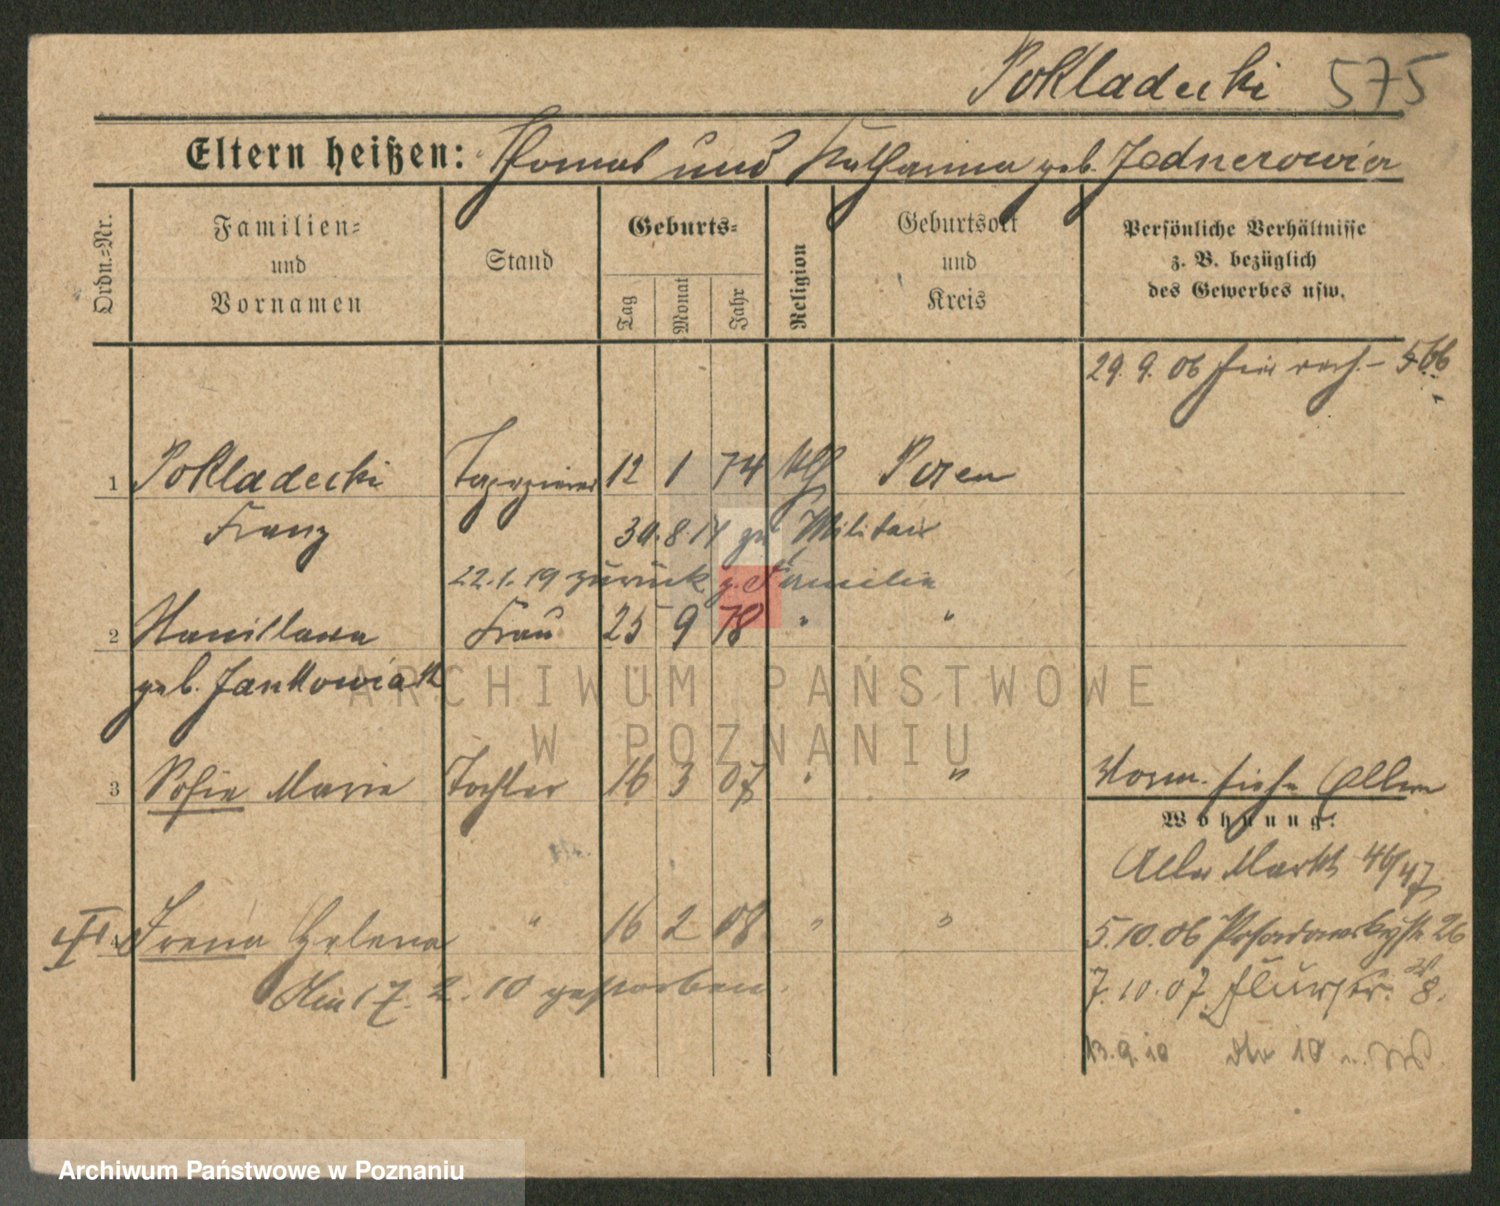 Pokladecki 575
Eltern heißen: Thomas und Katharina geb. Jednerowicz
Ordn.=Nr.
Familien= und Vornamen
Stand
Geburts=
Tag
Monat
Jahr
Religion
Geburtsort und Kreis
Persönliche Verhältnisse z. B. bezüglich des Gewerbes usw.
29. 9. 06
1 Pokladecki Tapezierer 12 1 74 kth Posen
Franz 30. 8. 17 zu Militair
22. 1. 19 zurück z. Familie
2 Stanislawa Frau 25 9 78 " "
geb. Jankowiak
3 Sofie Marie Tochter 16 3 07 " "
Vorm. siehe Eltern
Wohnung:
Alter Markt 46/47
Irena Helena " 16 2 08 " "
5. 10. 06 Posadowskystr. 26
Am 17. 2. 10 gestorben.
7. 10. 07. Flurstr. 8.
13. 9. 10 10
ARCHIWUM PAŃSTWOWE
W POZNANIU
Archiwum Państwowe w Poznaniu